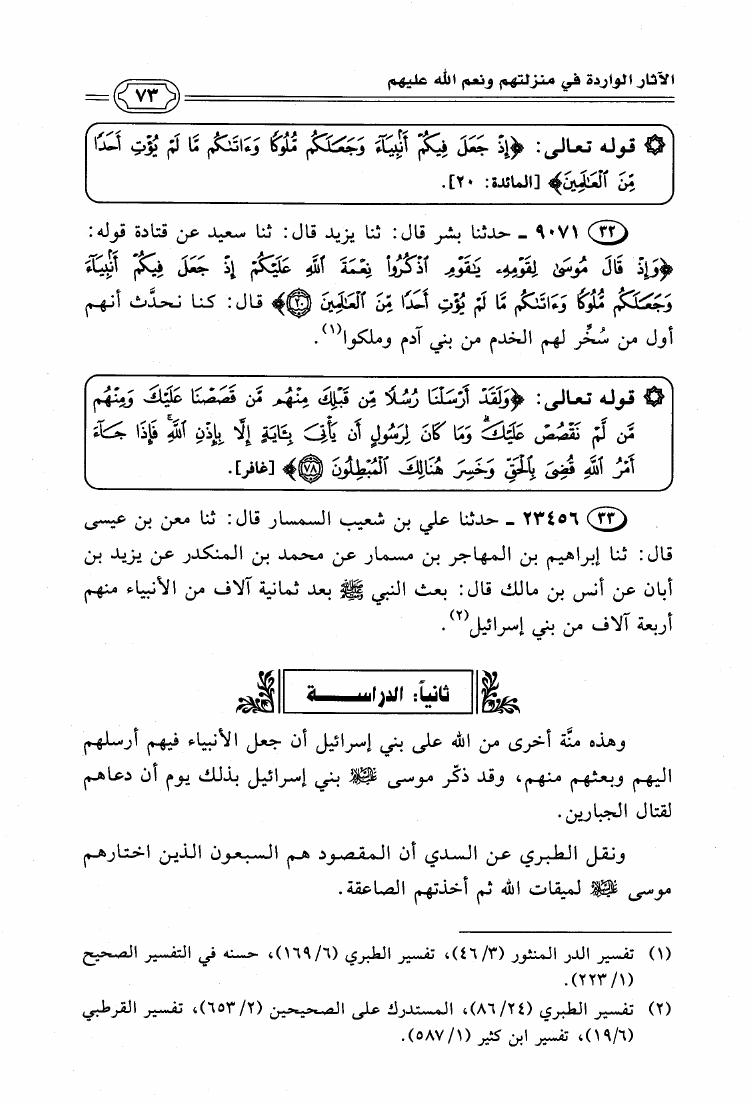 الآثار الواردة في منزلتهم ونعم الله عليهم
٧٣
۞ قوله تعالى: ﴿إِذْ جَعَلَ فِيكُمْ أَنۢبِيَآءَ وَجَعَلَكُم مُّلُوكًا وَءَاتَىٰكُم مَّا لَمْ يُؤْتِ أَحَدًا
مِّنَ ٱلْعَـٰلَمِينَ﴾ [المائدة: ٢٠].
(٣٢) ٩٠٧١ ـ حدثنا بشر قال: ثنا يزيد قال: ثنا سعيد عن قتادة قوله:
﴿وَإِذْ قَالَ مُوسَىٰ لِقَوْمِهِۦ يَـٰقَوْمِ ٱذْكُرُوا۟ نِعْمَةَ ٱللَّهِ عَلَيْكُمْ إِذْ جَعَلَ فِيكُمْ أَنۢبِيَآءَ
وَجَعَلَكُم مُّلُوكًا وَءَاتَىٰكُم مَّا لَمْ يُؤْتِ أَحَدًا مِّنَ ٱلْعَـٰلَمِينَ (٢٠)﴾ قال: كنا نحدَّث أنهم
أول من سُخِّر لهم الخدم من بني آدم وملكوا(١).
۞ قوله تعالى: ﴿وَلَقَدْ أَرْسَلْنَا رُسُلًا مِّن قَبْلِكَ مِنْهُم مَّن قَصَصْنَا عَلَيْكَ وَمِنْهُم
مَّن لَّمْ نَقْصُصْ عَلَيْكَ ۗ وَمَا كَانَ لِرَسُولٍ أَن يَأْتِىَ بِـَٔايَةٍ إِلَّا بِإِذْنِ ٱللَّهِ ۚ فَإِذَا جَآءَ
أَمْرُ ٱللَّهِ قُضِىَ بِٱلْحَقِّ وَخَسِرَ هُنَالِكَ ٱلْمُبْطِلُونَ (٧٨)﴾ [غافر].
(٣٣) ٢٣٤٥٦ ـ حدثنا علي بن شعيب السمسار قال: ثنا معن بن عيسى
قال: ثنا إبراهيم بن المهاجر بن مسمار عن محمد بن المنكدر عن يزيد بن
أبان عن أنس بن مالك قال: بعث النبي ﷺ بعد ثمانية آلاف من الأنبياء منهم
أربعة آلاف من بني إسرائيل(٢).
ثانياً: الدراســـة
وهذه منَّة أخرى من الله على بني إسرائيل أن جعل الأنبياء فيهم أرسلهم
اليهم وبعثهم منهم، وقد ذكّر موسى عليه السلام بني إسرائيل بذلك يوم أن دعاهم
لقتال الجبارين.
ونقل الطبري عن السدي أن المقصود هم السبعون الذين اختارهم
موسى عليه السلام لميقات الله ثم أخذتهم الصاعقة.
(١) تفسير الدر المنثور (٤٦/٣)، تفسير الطبري (١٦٩/٦)، حسنه في التفسير الصحيح
(٢٢٣/١).
(٢) تفسير الطبري (٨٦/٢٤)، المستدرك على الصحيحين (٦٥٣/٢)، تفسير القرطبي
(١٩/٦)، تفسير ابن كثير (٥٨٧/١).